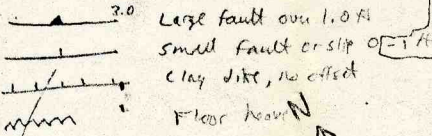 3.0 Large fault over 1.0 ft
Small fault or slip 0-1 ft
Clay dike, no offset
Floor heave N